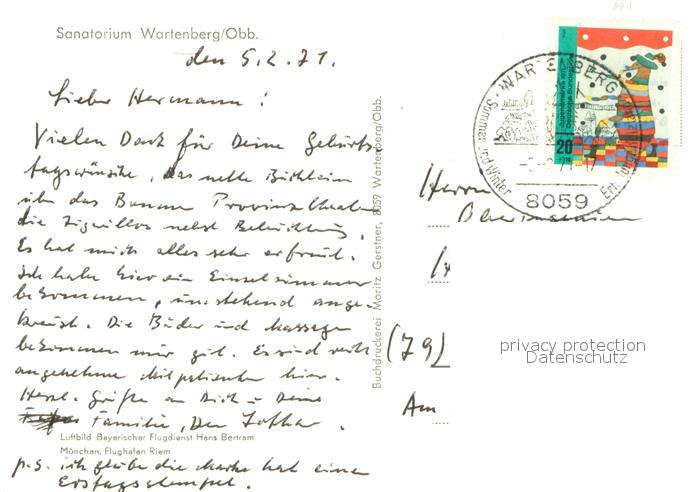 Sanatorium Wartenberg/Obb.
den 5.2.71.
Lieber Hermann!
Vielen Dank für Deine Geburts-
tagswünsche, das nette Büchlein
über das Provinztheater
die Zigarillos nebst
Es hat mich alles sehr erfreut.
Ich habe hier ein Einzelzimmer
bekommen, umstehend ange-
kreuzt. Die Bäder und Massagen
bekommen mir gut. Es sind recht
angenehme Mitpatienten hier.
Herzl. Grüße an Dich u. Deine
Familie, Dein
Luftbild Bayerischer Flugdienst Hans Bertram
München, Flughafen Riem
p.s. ich glaube die Marke hat einen
Erstagsstempel.
Buchdruckerei Moritz Gerstner, 8059 Wartenberg/Obb.
WARTENBERG
Sommer und Winter
8059
Deutsche Bundespost
20
Herrn
(79)
Am
privacy protection
Datenschutz